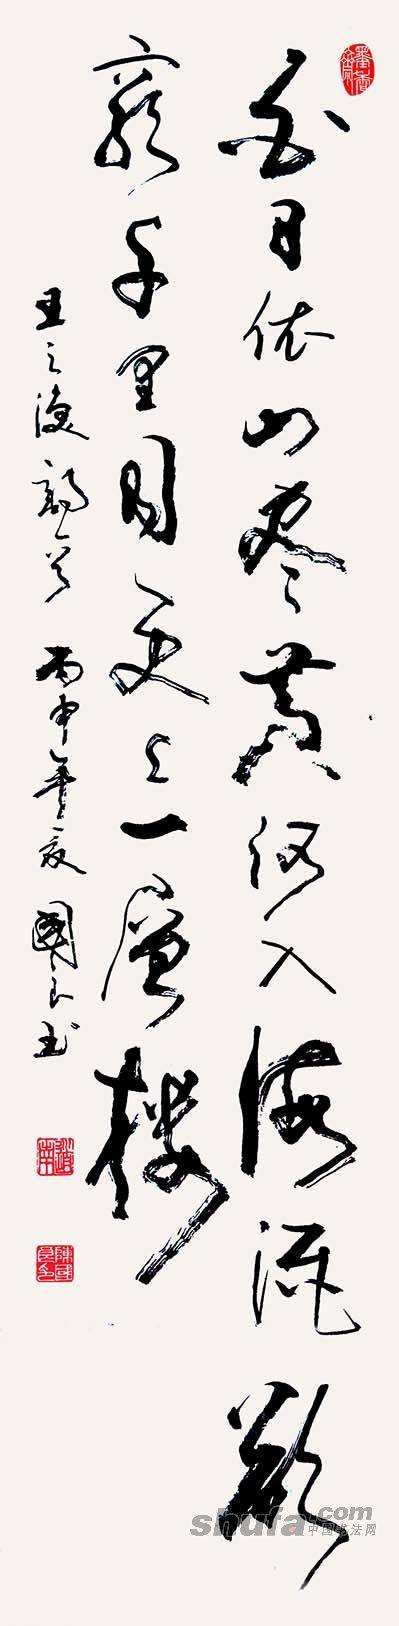 白日依山尽黄河入海流欲
穷千里目更上一层楼
王之涣诗 丙申年 國良书
陳國良印
shufa.com
中国书法网